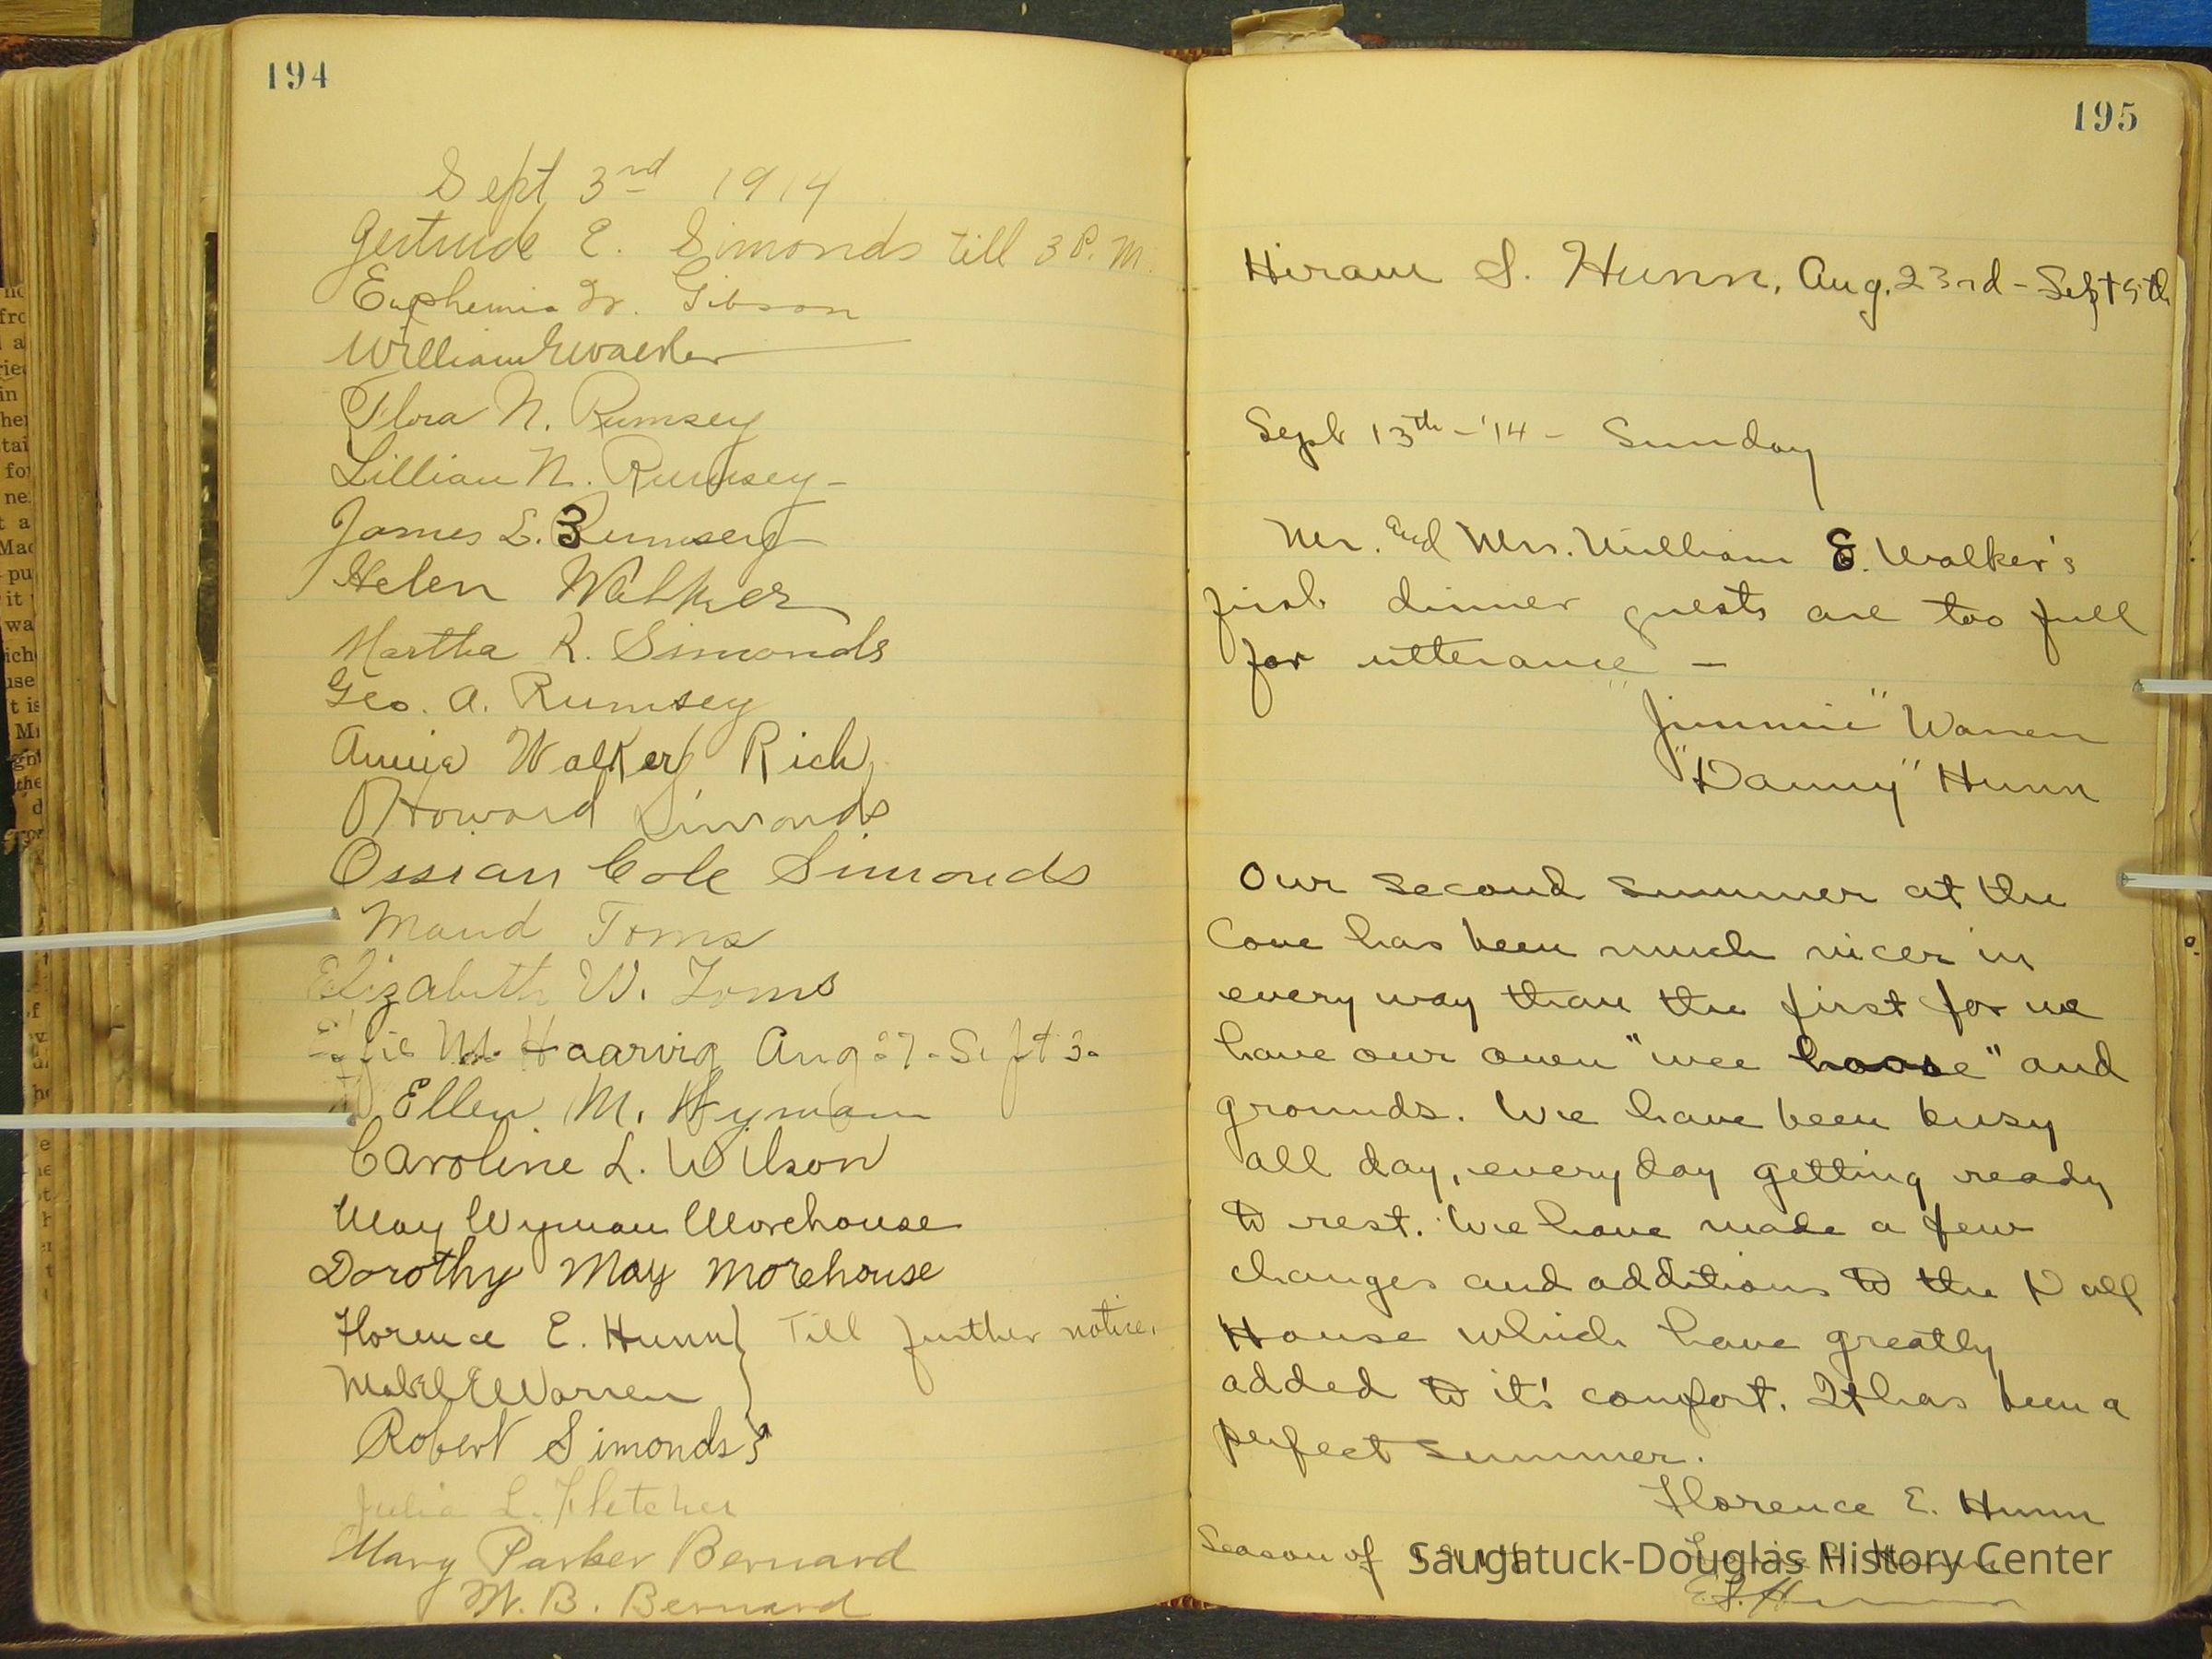 194
Sept 3rd 1914
Gertrude E. Simonds till 3 P.M.
Euphemia W. Gibson
William E Walker
Flora N. Rumsey
Lillian N. Rumsey-
James L. Rumsey
Helen Walker
Martha R. Simonds
Geo. A. Rumsey
Annie Walker Rich
Howard Simonds
Ossian Cole Simonds
Maud Toms
Elizabeth W. Toms
M. Haarvig Aug 27 - Sept 3.
Ellen M. Wyman
Caroline L. Wilson
May Wyman Morehouse
Dorothy May Morehouse
Florence E. Hunn } Till further notice.
Mabel E Warren
Robert Simonds
Julia L. Fletcher
Mary Parker Bernard
W. B. Bernard
195
Hiram S. Hunn, Aug. 23rd - Sept 5th
Sept 13th - '14 - Sunday
Mr. and Mrs. William E. Walker's
first dinner guests are too full
for utterance -
"Jimmie" Warren
"Danny" Hunn
Our second summer at the
Cove has been much nicer in
every way than the first for we
have our own "wee hoose" and
grounds. We have been busy
all day, every day getting ready
to rest. We have made a few
changes and additions to the Doll
House which have greatly
added to it's comfort. It has been a
perfect summer.
Florence E. Hunn
Season of 1914
Hunn
E.S. Hunn
Saugatuck-Douglas History Center